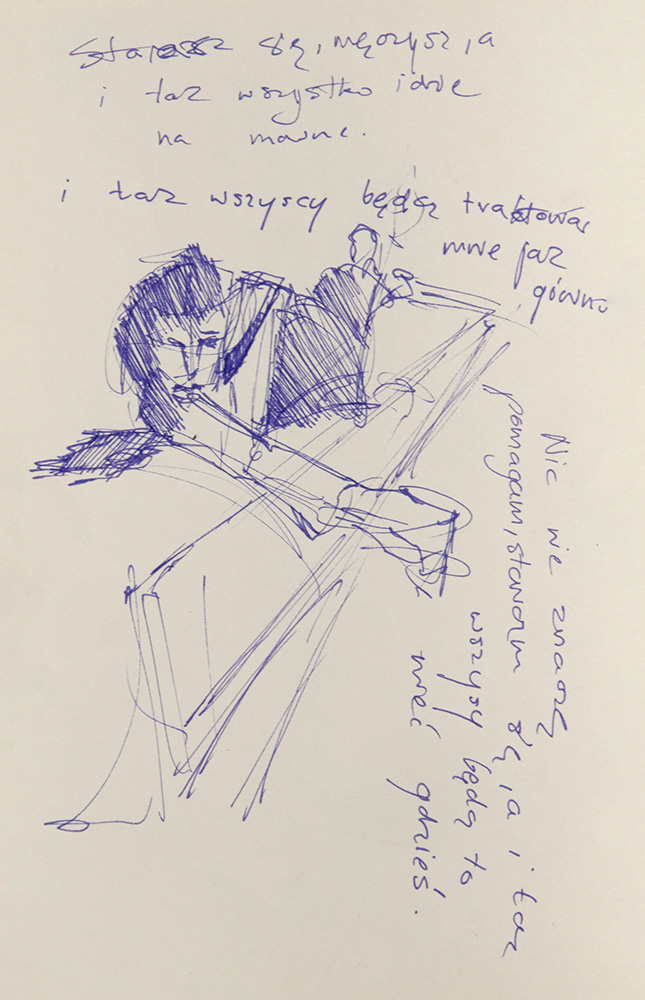 Starasz się, męczysz, a
i tak wszystko idzie
na marne.
i tak wszyscy będą traktować
mnie jak
gówno
Nic nie znaczę
pomagam, staram się, a i tak
wszyscy będą to
mieć gdzieś.